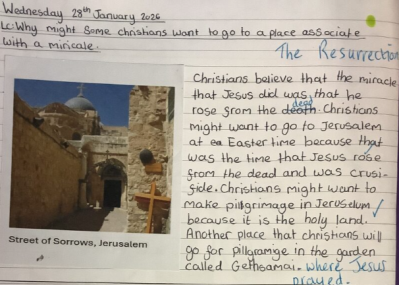 Wednesday 28th January 2026
Lc: Why might some christians want to go to a place associate
with a miricale.
The Resurrection
Christians believe that the miracle
that Jesus did was, that he
dead
rose from the death. Christians
might want to go to Jerusalem
at ea Easter time because that
was the time that Jesus rose
from the dead and was crusi-
fide. Christians might want to
make pilgrimage in Jeruslum
because it is the holy land.
Another place that christians will
go for pillgramige in the garden
called Gethsamai. where Jesus
prayed.
Street of Sorrows, Jerusalem